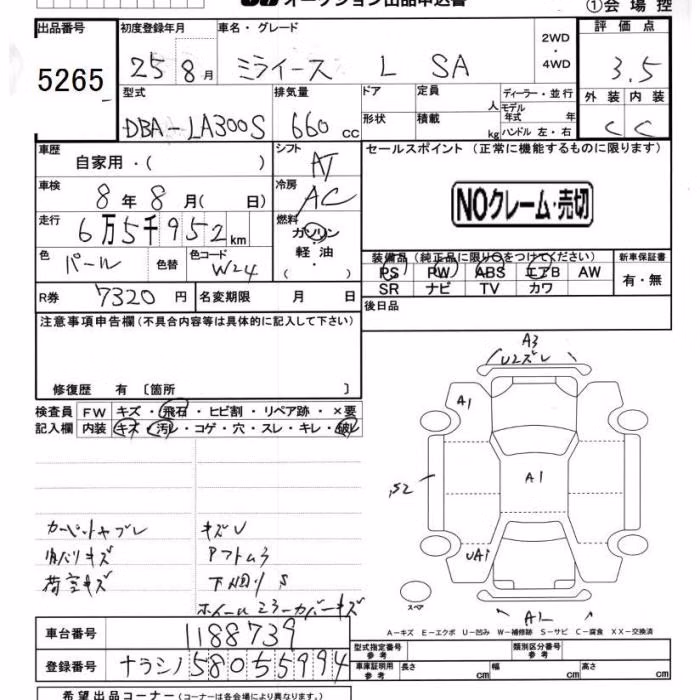 オークション出品申込書
①会場控
出品番号 初度登録年月 車名・グレード 2WD・4WD 評価点
5265 25 8月 ミライース L SA 3.5
型式 排気量 ドア 定員 人 ディーラー・並行
DBA-LA300S 660cc 形状 積載 kg モデル年式 年
ハンドル 左・右
外装 内装
C C
車歴 自家用・( ) シフト AT セールスポイント (正常に機能するものに限ります)
車検 8年8月( 日) 冷房 AC
NOクレーム・売切
走行 6万5千952km 燃料 ガソリン・軽油・( )
色 パール 色替 色コード W24
装備品(純正品に限り○をつけてください) 新車保証書
PS PW ABS エアB AW 有・無
SR ナビ TV カワ
R券 7320円 名変期限 月 日 後日品
注意事項申告欄(不具合内容等は具体的に記入して下さい)
修復歴 有 〔箇所 〕
検査員 FW キズ・飛石・ヒビ割・リペア跡・×要
記入欄 内装 キズ・汚レ・コゲ・穴・スレ・キレ・破レ
A3
U2ズレ
A1
S2
A1
UA1
スペア
A1
キズU
下回りS
荷室キズ
ホイールミラーカバーキズ
A-キズ E-エクボ U-凹み W-補修跡 S-サビ C-腐食 XX-交換済
車台番号 1188739
型式指定番号 参考 類別区分番号 参考
登録番号 ナラシノ580 5 5994
車庫証明用 参考 長さ cm 幅 cm 高さ cm
希望出品コーナー(コーナーは各会場により異なります)